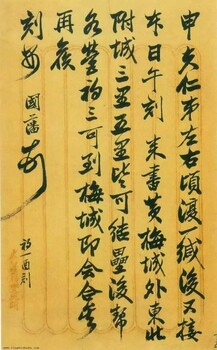 申夫仁弟左右頃復一緘後又接
本日午刻來書黃梅城外東北
附城三里五里皆可結壘後幫
各營初三可到梅城即會合
再復
刻安 國藩
初一酉刻